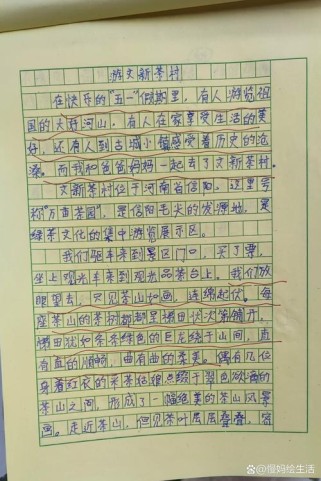 游文新茶村
在快乐的“五一”假期里，有人游览祖
国的大好河山，有人在家享受生活的美
好，还有人到古城小镇感受着历史的沧
桑。而我和爸爸妈妈一起去了文新茶村。
文新茶村位于河南省信阳，这里号
称“万亩茶园”，是信阳毛尖的发源地，是
绿茶文化的集中游览展示区。
我们驱车来到景区门口，买了票，
坐上观光车来到观光品茶台上。我们放
眼望去，只见茶山如画，连绵起伏。每
座茶山的茶树都都呈梯田状次第铺开，
梯田犹如条条绿色的巨龙绕于山间，直
有直的顺畅，曲有曲的柔美。偶有几位
身着红衣的采茶伯伯点缀于翠色欲滴的
茶山之间，形成了一幅绝美的茶山风景
画。走近茶山，但见茶叶层层叠叠，密
@慢妈绘生活